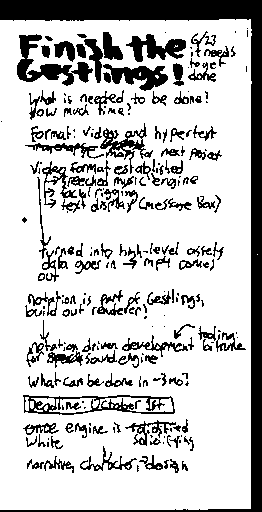 Finish the
Gestlings!
6/23
it needs
to get
done
What is needed to be done?
How much time?
Format: Videos and hypertext
maps for next project
Video format established
→ speeched music engine
→ facial rigging
→ text display (message box)
turned into high-level assets
data goes in → mp4 comes
out
notation is part of Gestlings,
build out renderer?
notation driven development
for sound engine
tooling:
What can be done in ~3mo?
Deadline: October 1st
once engine is solidified
solidifying
narrative, character, design